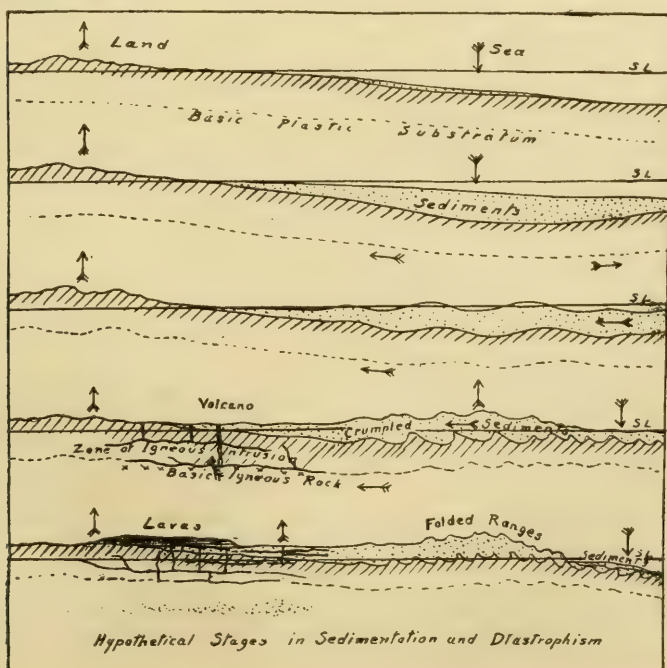 Land Sea
S L
Basic Plastic Substratum
S L
Sediments
S L
Volcano
Crumpled Sediments
S L
Zone of Igneous Intrusion
Basic Igneous Rock
Lavas
Folded Ranges
S L
Sediments
Hypothetical Stages in Sedimentation and Diastrophism